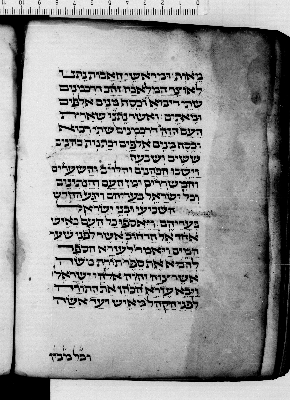 מאות ומראשי האבות נתנו
לאוצר המלאכה זהב דרכמונים
שתי רבוא וכסף מנים אלפים
ומאתים ואשר נתנו שארית
העם זהב דרכמונים שתי רבוא
וכסף מנים אלפים וכתנות כהנים
ששים ושבעה
וישבו הכהנים והלוים והשוערים
והמשררים ומן העם והנתינים
וכל ישראל בעריהם ויגע החדש
השביעי ובני ישראל
בעריהם ויאספו כל העם כאיש
אחד אל הרחוב אשר לפני שער
המים ויאמרו לעזרא הספר
להביא את ספר תורת משה
אשר צוה יהוה ישראל
ויביא עזרא הכהן את התורה
לפני הקהל מאיש ועד אשה
וכל מבין